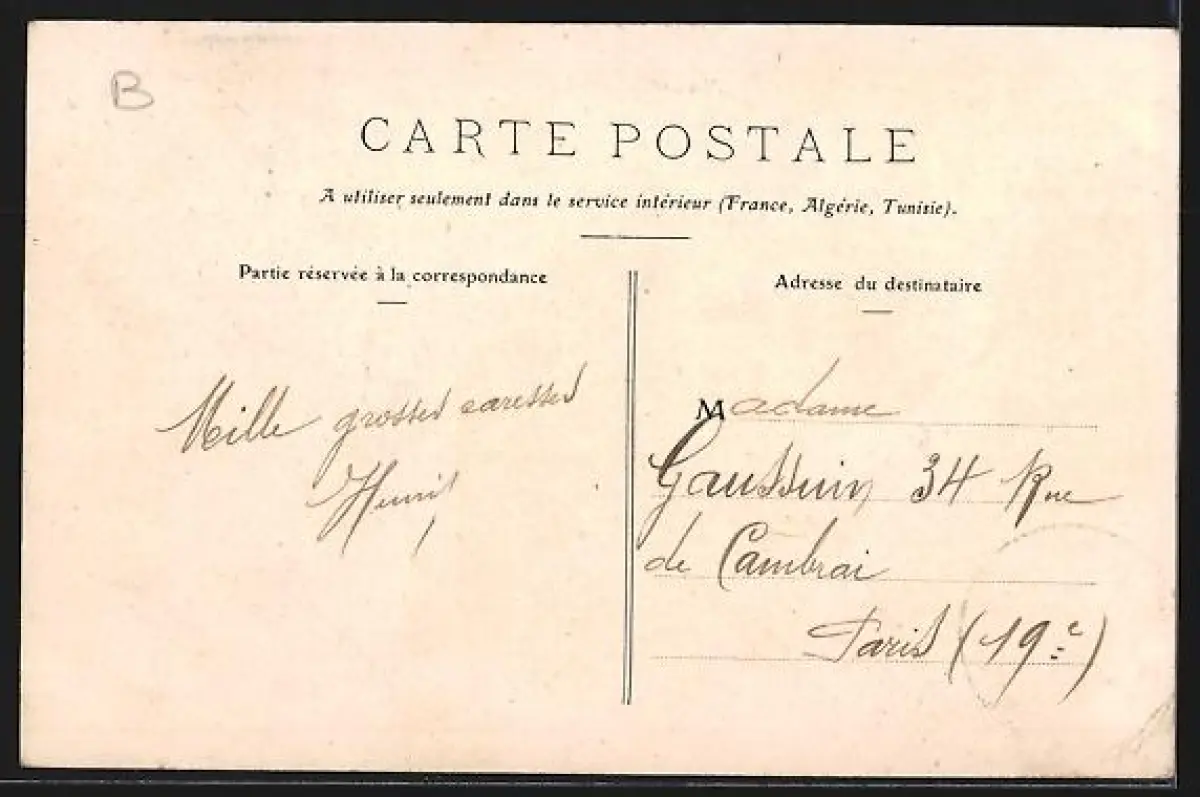 B
CARTE POSTALE
A utiliser seulement dans le service intérieur (France, Algérie, Tunisie).
Partie réservée à la correspondance
Mille grosses caresses
Henri
Adresse du destinataire
Madame
Gaussuin 34 Rue
de Cambrai
Paris (19e)